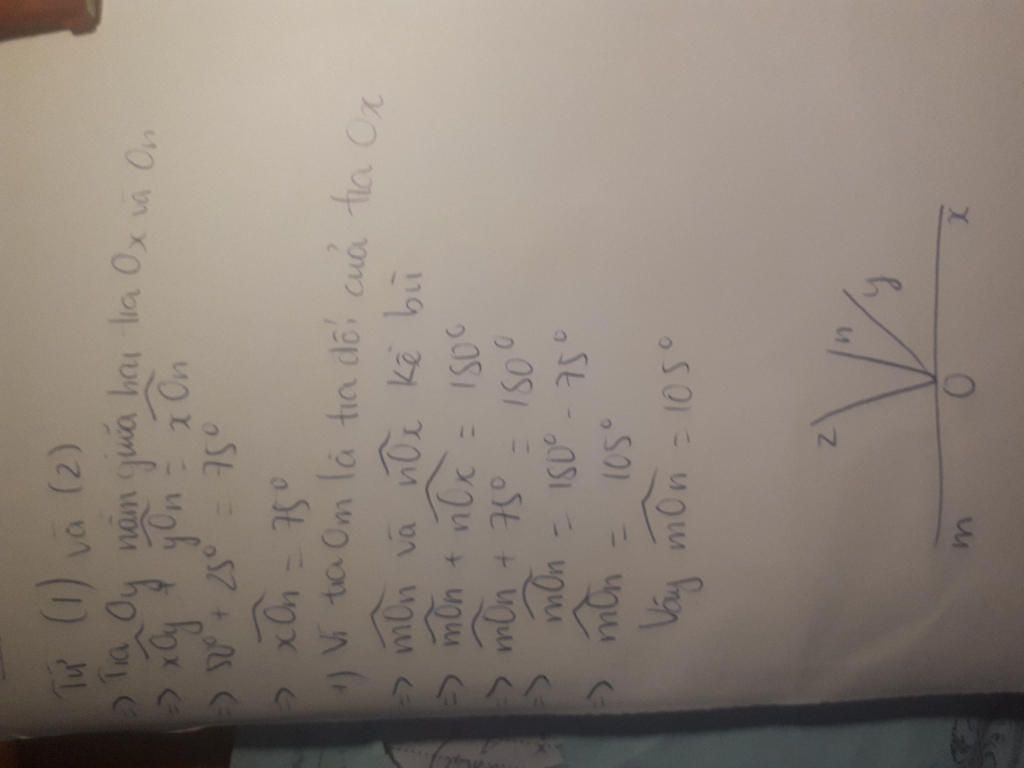 Từ (1) và (2)
=> Tia Oy nằm giữa hai tia Ox và On
=> xOy + yOn = xOn
=> 50° + 25° = 75°
=> xOn = 75°
+) Vì tia Om là tia đối của tia Ox
=> mOn và nOx kề bù
=> mOn + nOx = 180°
=> mOn + 75° = 180°
=> mOn = 180° - 75°
=> mOn = 105°
Vậy mOn = 105°
z n y
m O x